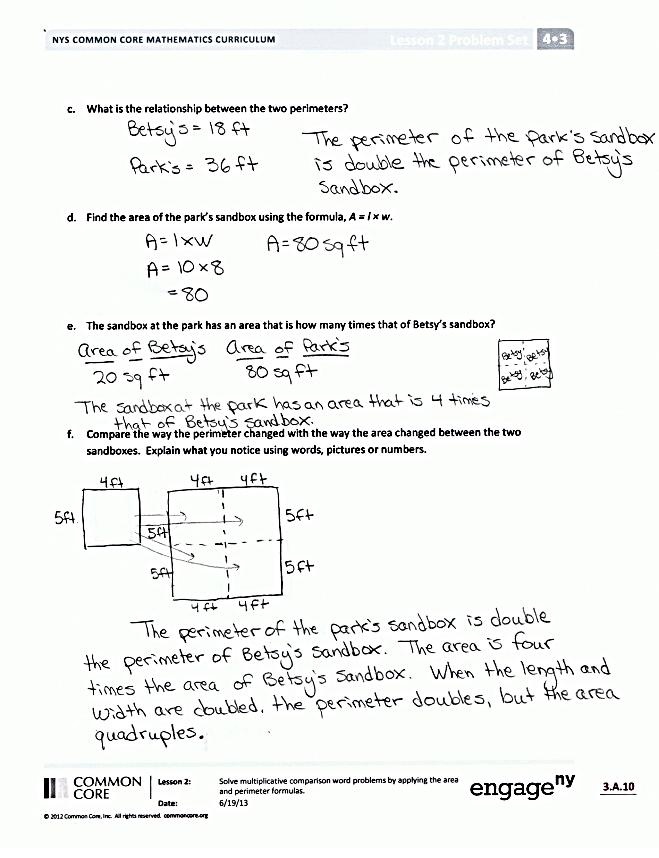 NYS COMMON CORE MATHEMATICS CURRICULUM
Lesson 2 Problem Set
4•3
c. What is the relationship between the two perimeters?
Betsy's = 18 ft
Park's = 36 ft
The perimeter of the Park's Sandbox
is double the perimeter of Betsy's
Sandbox.
d. Find the area of the park's sandbox using the formula, A = l x w.
A = l x w
A = 10 x 8
= 80
A = 80 sq ft
e. The sandbox at the park has an area that is how many times that of Betsy's sandbox?
Area of Betsy's
20 sq ft
Area of Park's
80 sq ft
Betsy Betsy
Betsy Betsy
The sandbox at the park has an area that is 4 times
that of Betsy's sandbox.
f. Compare the way the perimeter changed with the way the area changed between the two
sandboxes. Explain what you notice using words, pictures or numbers.
4ft
4ft 4ft
5ft
5ft
5ft
5ft
5ft
4ft 4ft
The perimeter of the park's sandbox is double
the perimeter of Betsy's Sandbox. The area is four
times the area of Betsy's Sandbox. When the length and
width are doubled, the perimeter doubles, but the area
quadruples.
COMMON
CORE
Lesson 2:
Date:
Solve multiplicative comparison word problems by applying the area
and perimeter formulas.
6/19/13
engageny
3.A.10
© 2012 Common Core, Inc. All rights reserved. commoncore.org